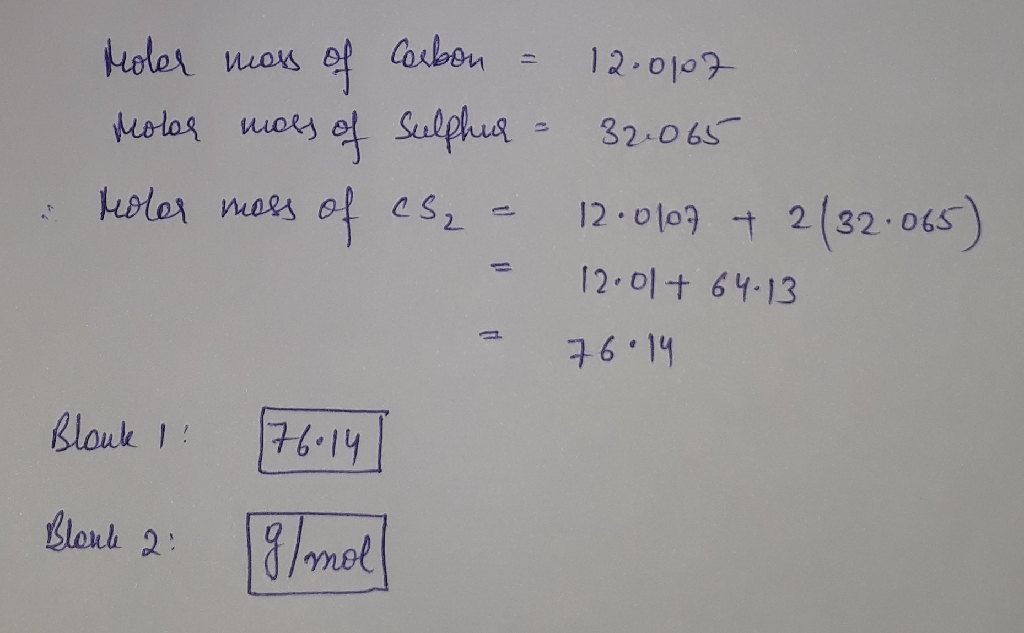 Molar mass of Carbon = 12.0107
Molar mass of Sulphur = 32.065
∴ Molar mass of CS2 = 12.0107 + 2(32.065)
= 12.01 + 64.13
= 76.14
Blank 1: 76.14
Blank 2: g/mol